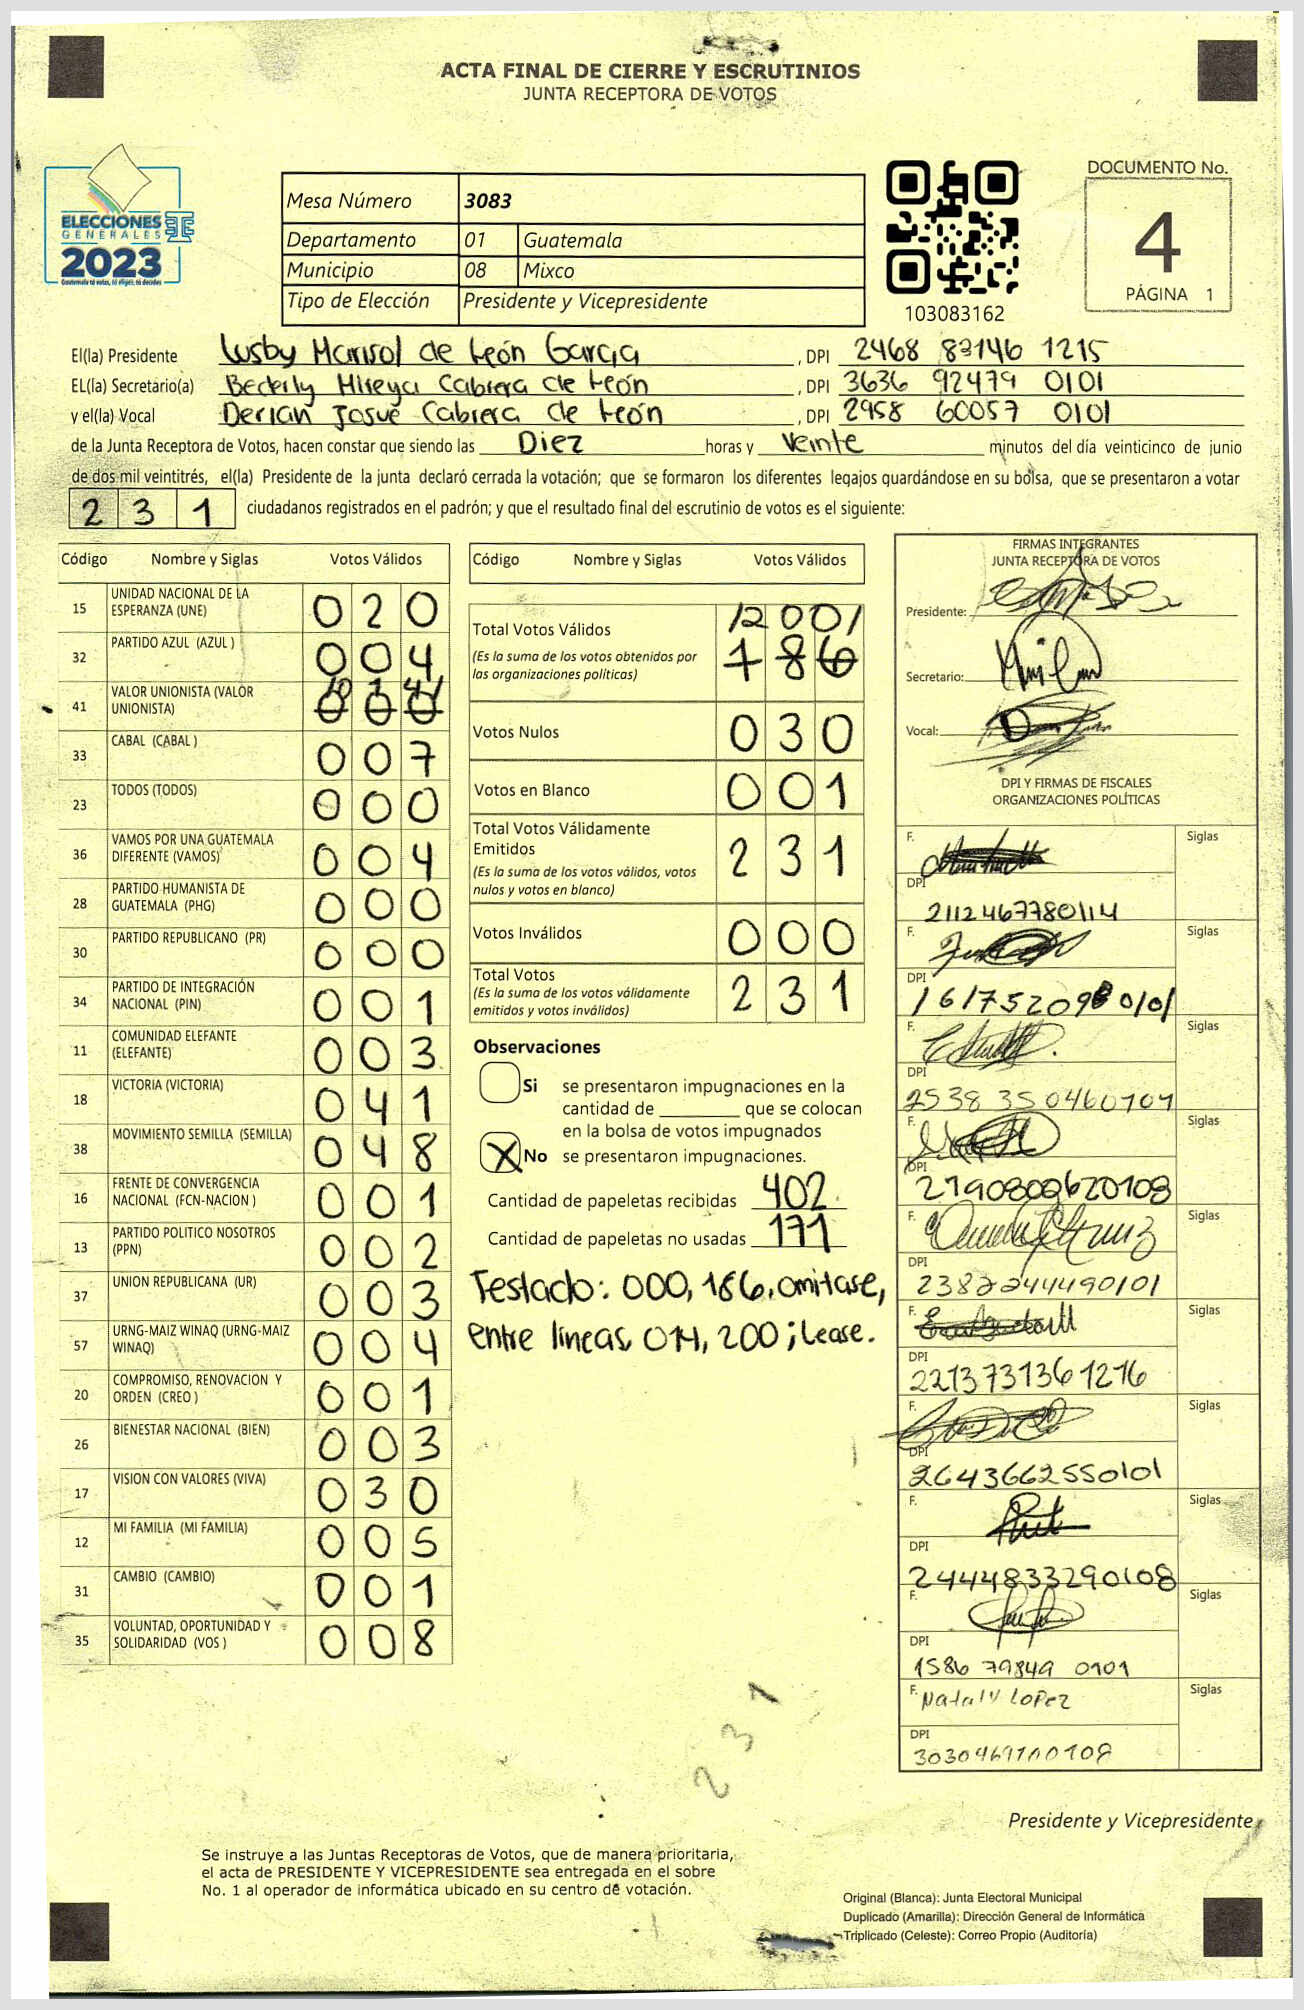 ACTA FINAL DE CIERRE Y ESCRUTINIOS
JUNTA RECEPTORA DE VOTOS
ELECCIONES
GENERALES
2023
Guatemala tú votas, tú eliges, tú decides
Mesa Número 3083
Departamento 01 Guatemala
Municipio 08 Mixco
Tipo de Elección Presidente y Vicepresidente
103083162
DOCUMENTO No.
4
PÁGINA 1
El(la) Presidente Lusby Marisol de León García, DPI 2468 83146 1215
EL(la) Secretario(a) Beverly Mireya Cabrera de León, DPI 3636 92479 0101
y el(la) Vocal Derian Josué Cabrera de León, DPI 2958 60057 0101
de la Junta Receptora de Votos, hacen constar que siendo las Diez horas y Veinte minutos del día veinticinco de junio
de dos mil veintitrés, el(la) Presidente de la junta declaró cerrada la votación; que se formaron los diferentes legajos guardándose en su bolsa, que se presentaron a votar
231 ciudadanos registrados en el padrón; y que el resultado final del escrutinio de votos es el siguiente:
Código Nombre y Siglas Votos Válidos
15 UNIDAD NACIONAL DE LA ESPERANZA (UNE) 020
32 PARTIDO AZUL (AZUL ) 004
41 VALOR UNIONISTA (VALOR UNIONISTA) 000
33 CABAL (CABAL ) 007
23 TODOS (TODOS) 000
36 VAMOS POR UNA GUATEMALA DIFERENTE (VAMOS) 004
28 PARTIDO HUMANISTA DE GUATEMALA (PHG) 000
30 PARTIDO REPUBLICANO (PR) 000
34 PARTIDO DE INTEGRACIÓN NACIONAL (PIN) 001
11 COMUNIDAD ELEFANTE (ELEFANTE) 003
18 VICTORIA (VICTORIA) 041
38 MOVIMIENTO SEMILLA (SEMILLA) 048
16 FRENTE DE CONVERGENCIA NACIONAL (FCN-NACION ) 001
13 PARTIDO POLITICO NOSOTROS (PPN) 002
37 UNION REPUBLICANA (UR) 003
57 URNG-MAIZ WINAQ (URNG-MAIZ WINAQ) 004
20 COMPROMISO, RENOVACION Y ORDEN (CREO ) 001
26 BIENESTAR NACIONAL (BIEN) 003
17 VISION CON VALORES (VIVA) 030
12 MI FAMILIA (MI FAMILIA) 005
31 CAMBIO (CAMBIO) 001
35 VOLUNTAD, OPORTUNIDAD Y SOLIDARIDAD (VOS ) 008
Código Nombre y Siglas Votos Válidos
Total Votos Válidos /200/
(Es la suma de los votos obtenidos por las organizaciones políticas) 186
Votos Nulos 030
Votos en Blanco 001
Total Votos Válidamente Emitidos 231
(Es la suma de los votos válidos, votos nulos y votos en blanco)
Votos Inválidos 000
Total Votos 231
(Es la suma de los votos válidamente emitidos y votos inválidos)
Observaciones
Si se presentaron impugnaciones en la
cantidad de ________ que se colocan
en la bolsa de votos impugnados
X No se presentaron impugnaciones.
Cantidad de papeletas recibidas 402
Cantidad de papeletas no usadas 171
Testado: 000, 186, omitase,
entre líneas 014, 200; Lease.
FIRMAS INTEGRANTES
JUNTA RECEPTORA DE VOTOS
Presidente:
Secretario:
Vocal:
DPI Y FIRMAS DE FISCALES
ORGANIZACIONES POLÍTICAS
F. Siglas
DPI 2112467780114
F. Siglas
DPI
F. Siglas
DPI 2538 350460101
F. Siglas
DPI 2190802620108
F. Siglas
DPI 2382244490101
F. Siglas
DPI 2213731361216
F. Siglas
DPI 2643662550101
F. Siglas
DPI 2444833290108
F. Siglas
DPI 1586 79849 0101
F. Nataly Lopez Siglas
DPI 3030469100108
231
Presidente y Vicepresidente
Se instruye a las Juntas Receptoras de Votos, que de manera prioritaria,
el acta de PRESIDENTE Y VICEPRESIDENTE sea entregada en el sobre
No. 1 al operador de informática ubicado en su centro de votación.
Original (Blanca): Junta Electoral Municipal
Duplicado (Amarilla): Dirección General de Informática
Triplicado (Celeste): Correo Propio (Auditoría)